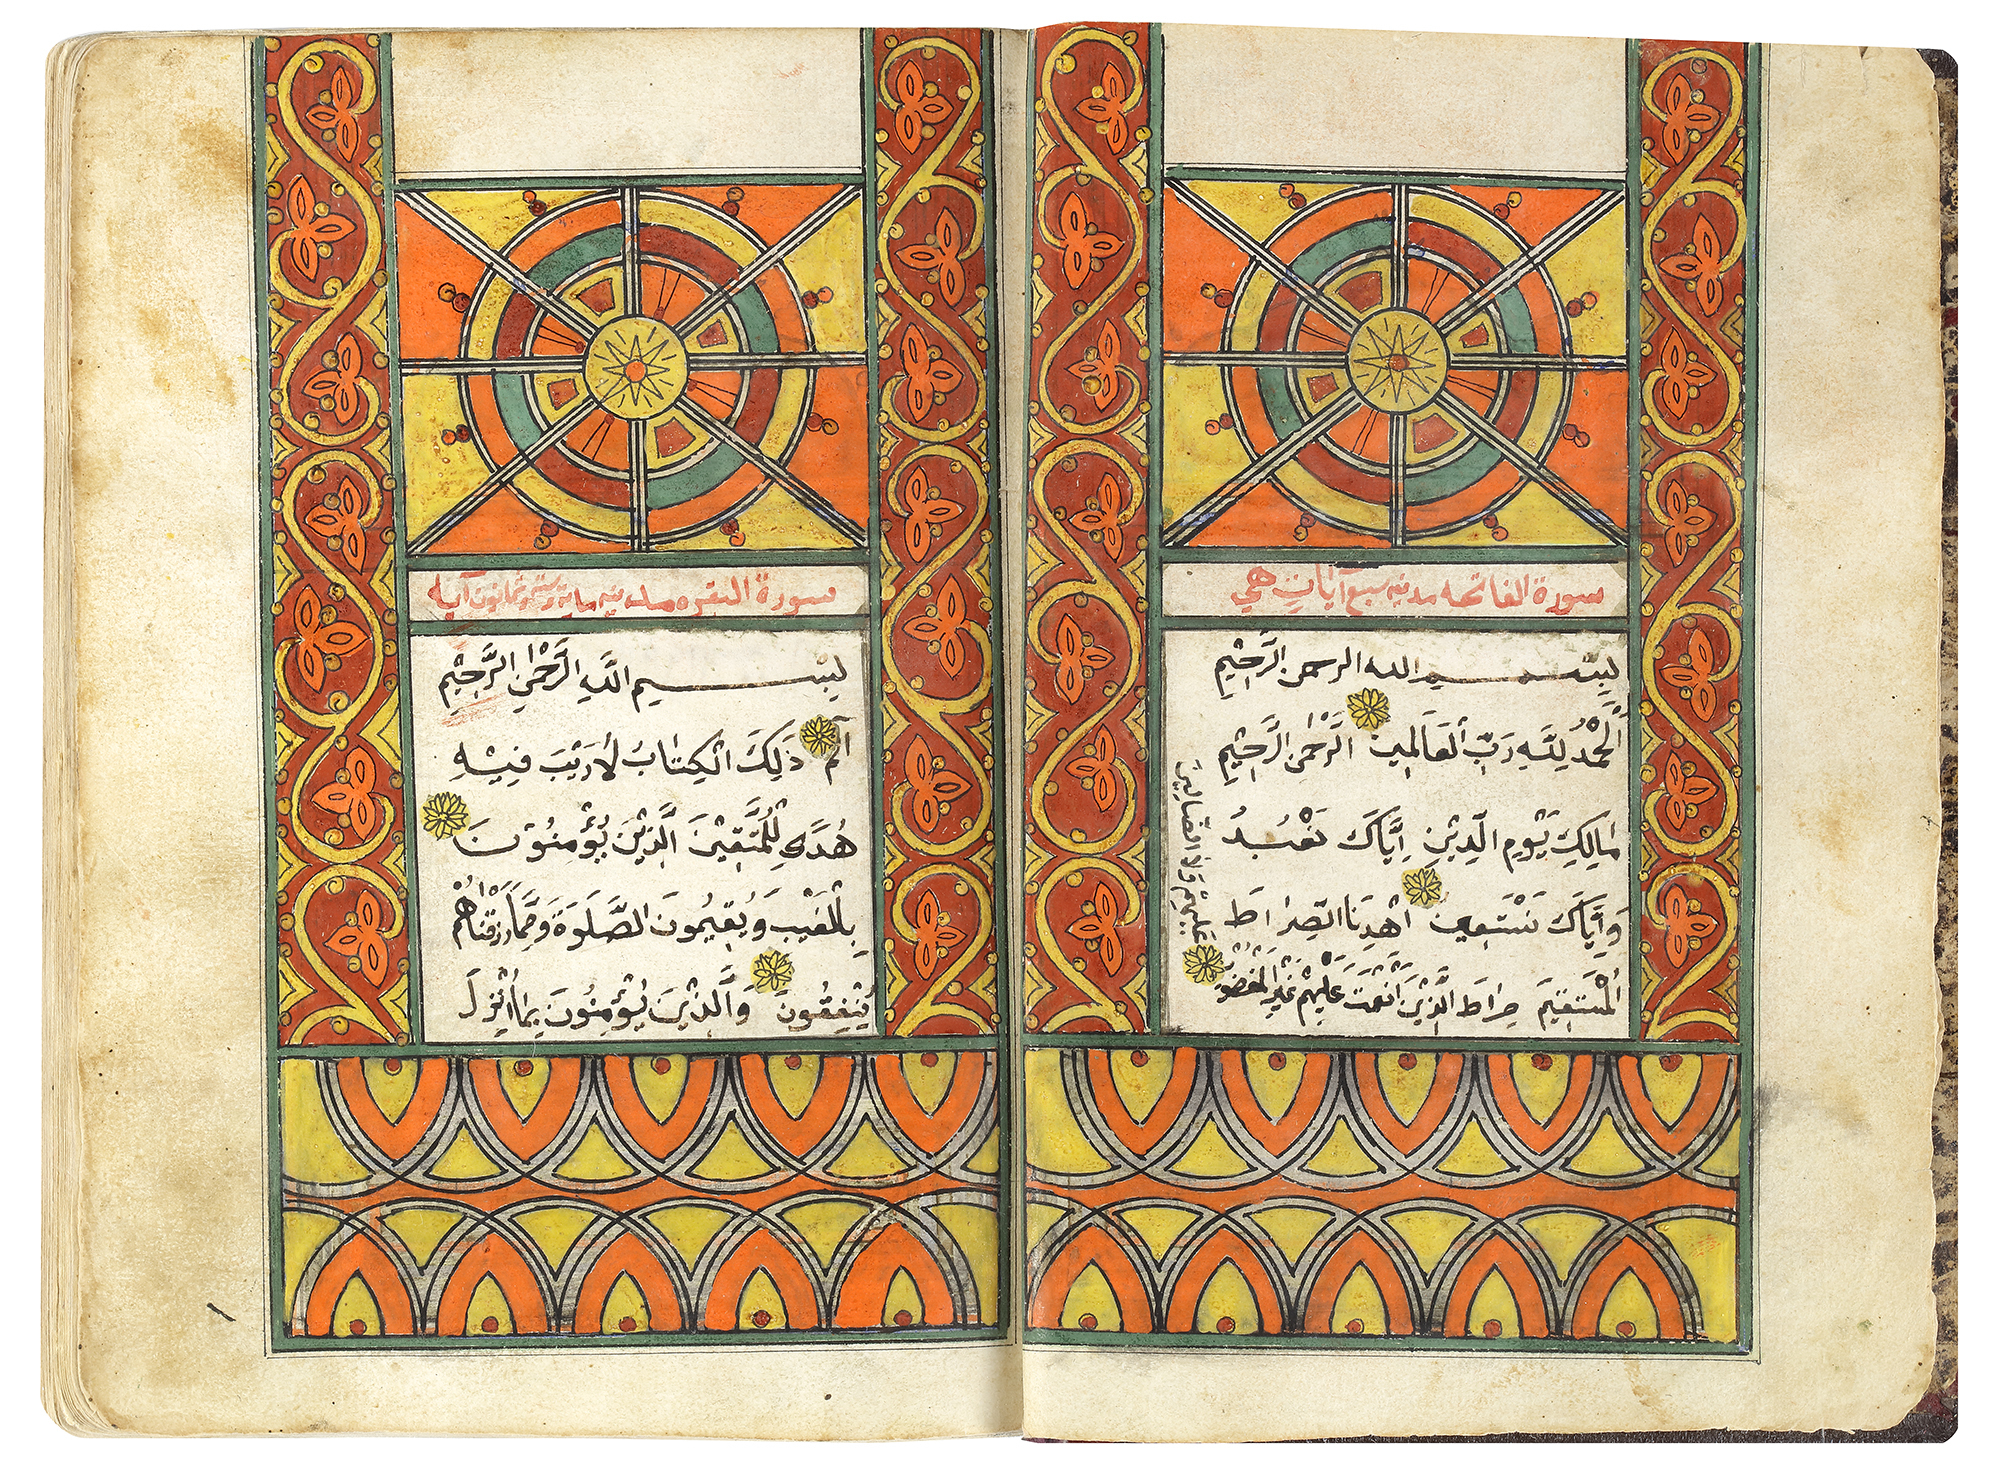 سورة الفاتحه مدنيه سبع آيات هي
بِسْــــمِ الله الرحمن الرَّحِيْمِ
اَلْحَمْدُ لِلّٰهِ رَبِّ الْعَالَمِيْنَ الرَّحْمٰنِ الرَّحِيْمِ
مَالِكِ يَوْمِ الدِّيْنِ اِيَّاكَ نَعْبُدُ
وَاِيَّاكَ نَسْتَعِيْنُ اهْدِنَا الصِّرَاطَ
الْمُسْتَقِيْمَ صِرَاطَ الَّذِيْنَ اَنْعَمْتَ عَلَيْهِمْ غَيْرِ الْمَغْضُوْبِ
عَلَيْهِمْ وَلَا الضَّالِّيْنَ
سورة البقره مدنيه مايه وستة وثمانون آيه
بِسْــــمِ اللَّهِ الرَّحْمٰنِ الرَّحِيْمِ
الٓمٓ ذَلِكَ الْكِتَابُ لَا رَيْبَ فِيْهِ
هُدًى لِلْمُتَّقِيْنَ الَّذِيْنَ يُؤْمِنُوْنَ
بِالْغَيْبِ وَيُقِيْمُونَ الصَّلَوةَ وَمِمَّا رَزَقْنَاهُمْ
يُنْفِقُونَ وَالَّذِيْنَ يُؤْمِنُوْنَ بِمَا اُنْزِلَ